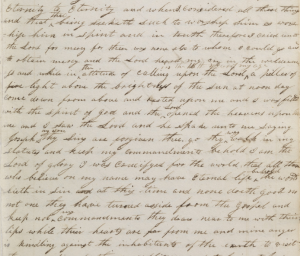 Eternity to Eternity and when I considered all these things
and that being seeketh such to worship him as wors
hip him in spirit and in truth therefore I cried unto
the Lord for mercy for there was none else to whom I could go and
to obtain mercy and the Lord heard my cry in the wilderness
and while in attitude of calling upon the Lord a piller of
light above the brightness of the sun at noon day
come down from above and rested upon me and I was filled
with the spirit of god and the Lord opened the heavens upon
me and I saw the Lord and he spake unto me saying
Joseph my son thy sins are forgiven thee go thy way walk in my
statutes and keep my commandments behold I am the
Lord of glory I was crucifyed for the world that all those
who believe on my name may have Eternal life behold the world
lieth in sin at this time and none doeth good no
not one they have turned asside from the Gospel and
keep not my commandments they draw near to me with their
lips while their hearts are far from me and mine anger
is kindling against the inhabitants of the earth to visit